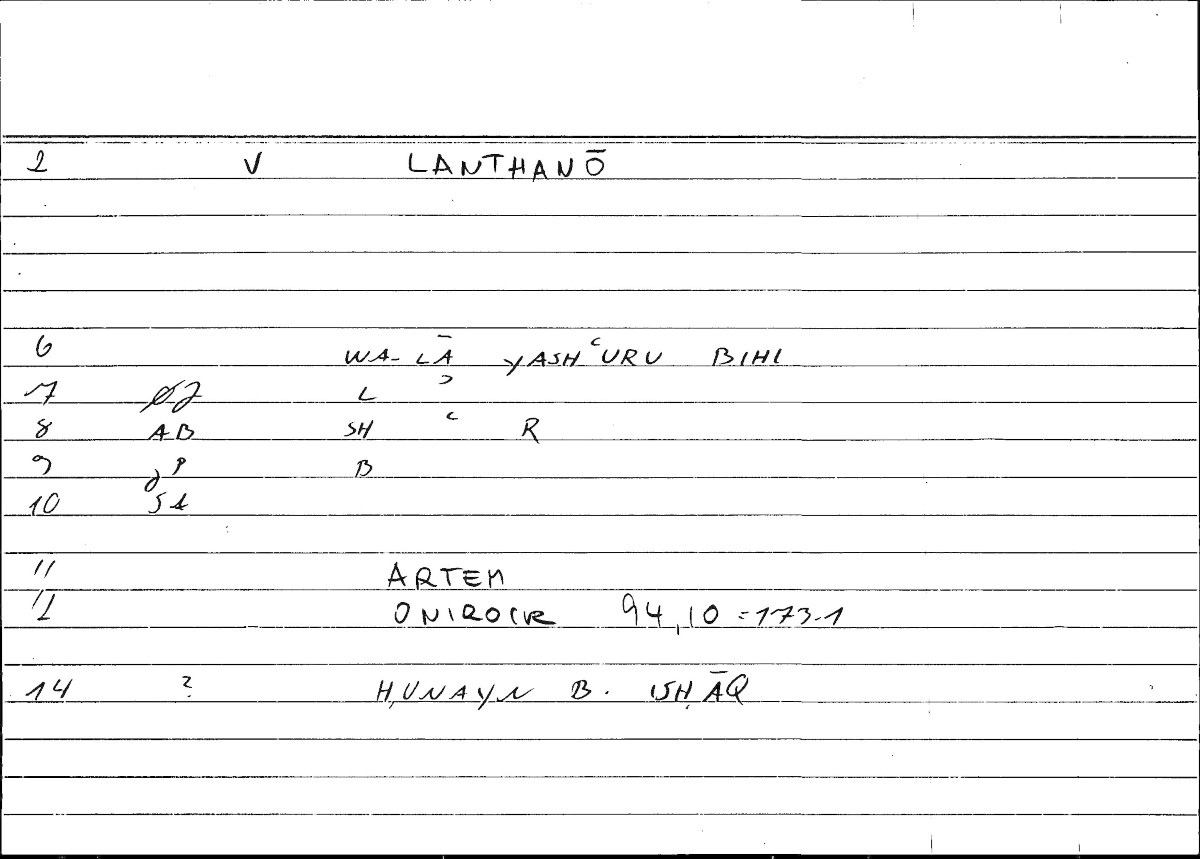 2 V LANTHANŌ
6 WA-LĀ YASHʿURU BIHI
7 ØJ L ʾ
8 AB SH ʿ R
9 JP B
10 SA
11 ARTEM
12 ONIROCR 94,10 = 173.1
14 ? ḤUNAYN B. ISḤĀQ